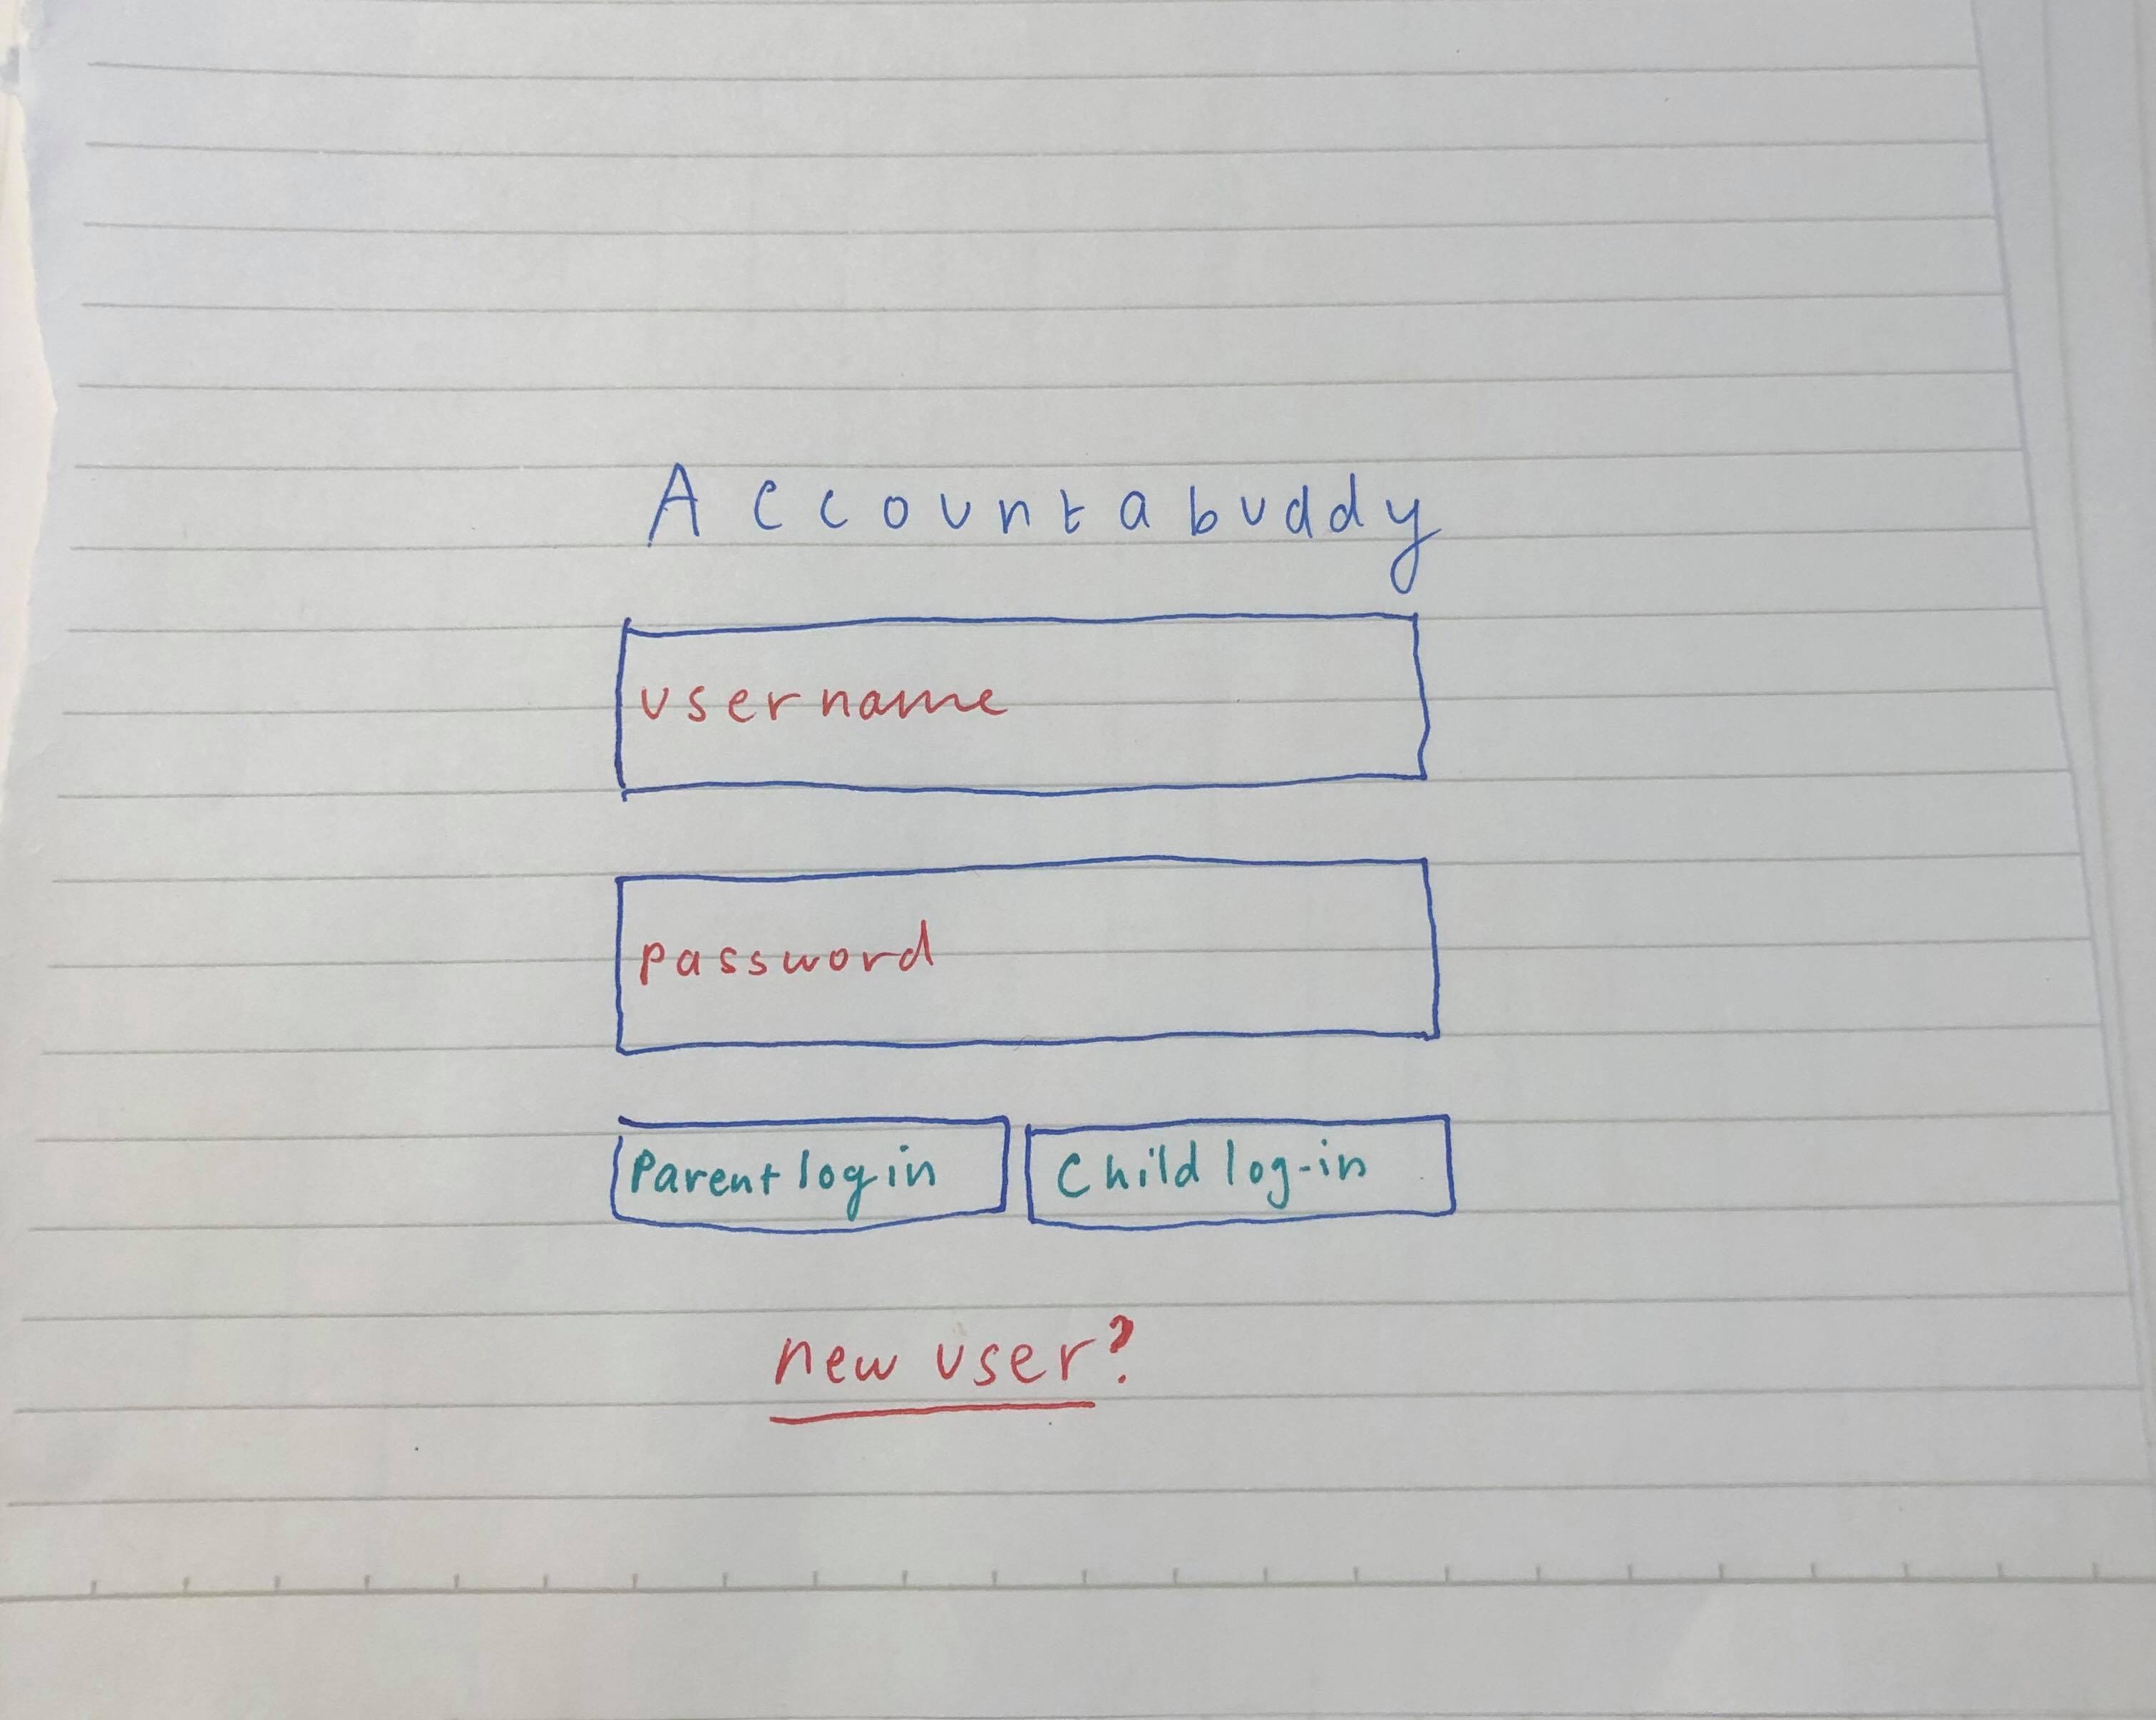 Accountabuddy
username
password
Parent login Child log-in
new user?